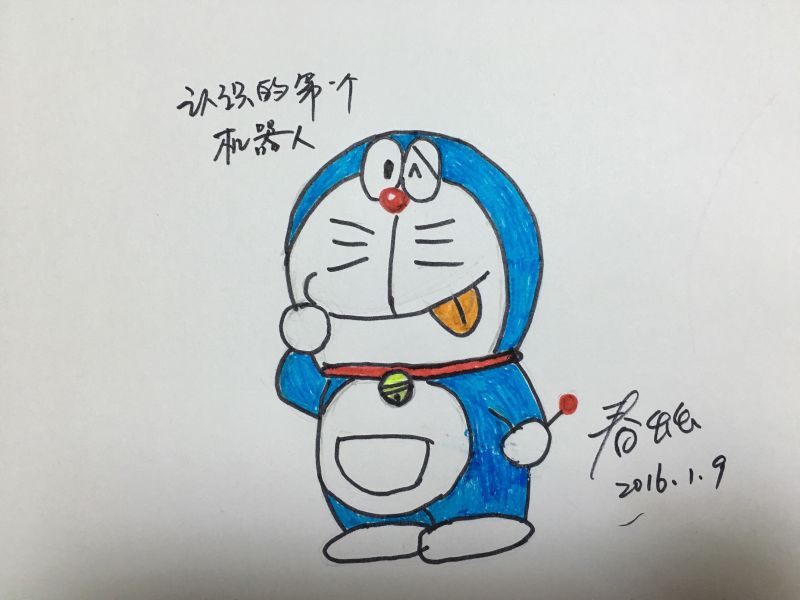 认识的第一个
机器人
春蚰
2016.1.9